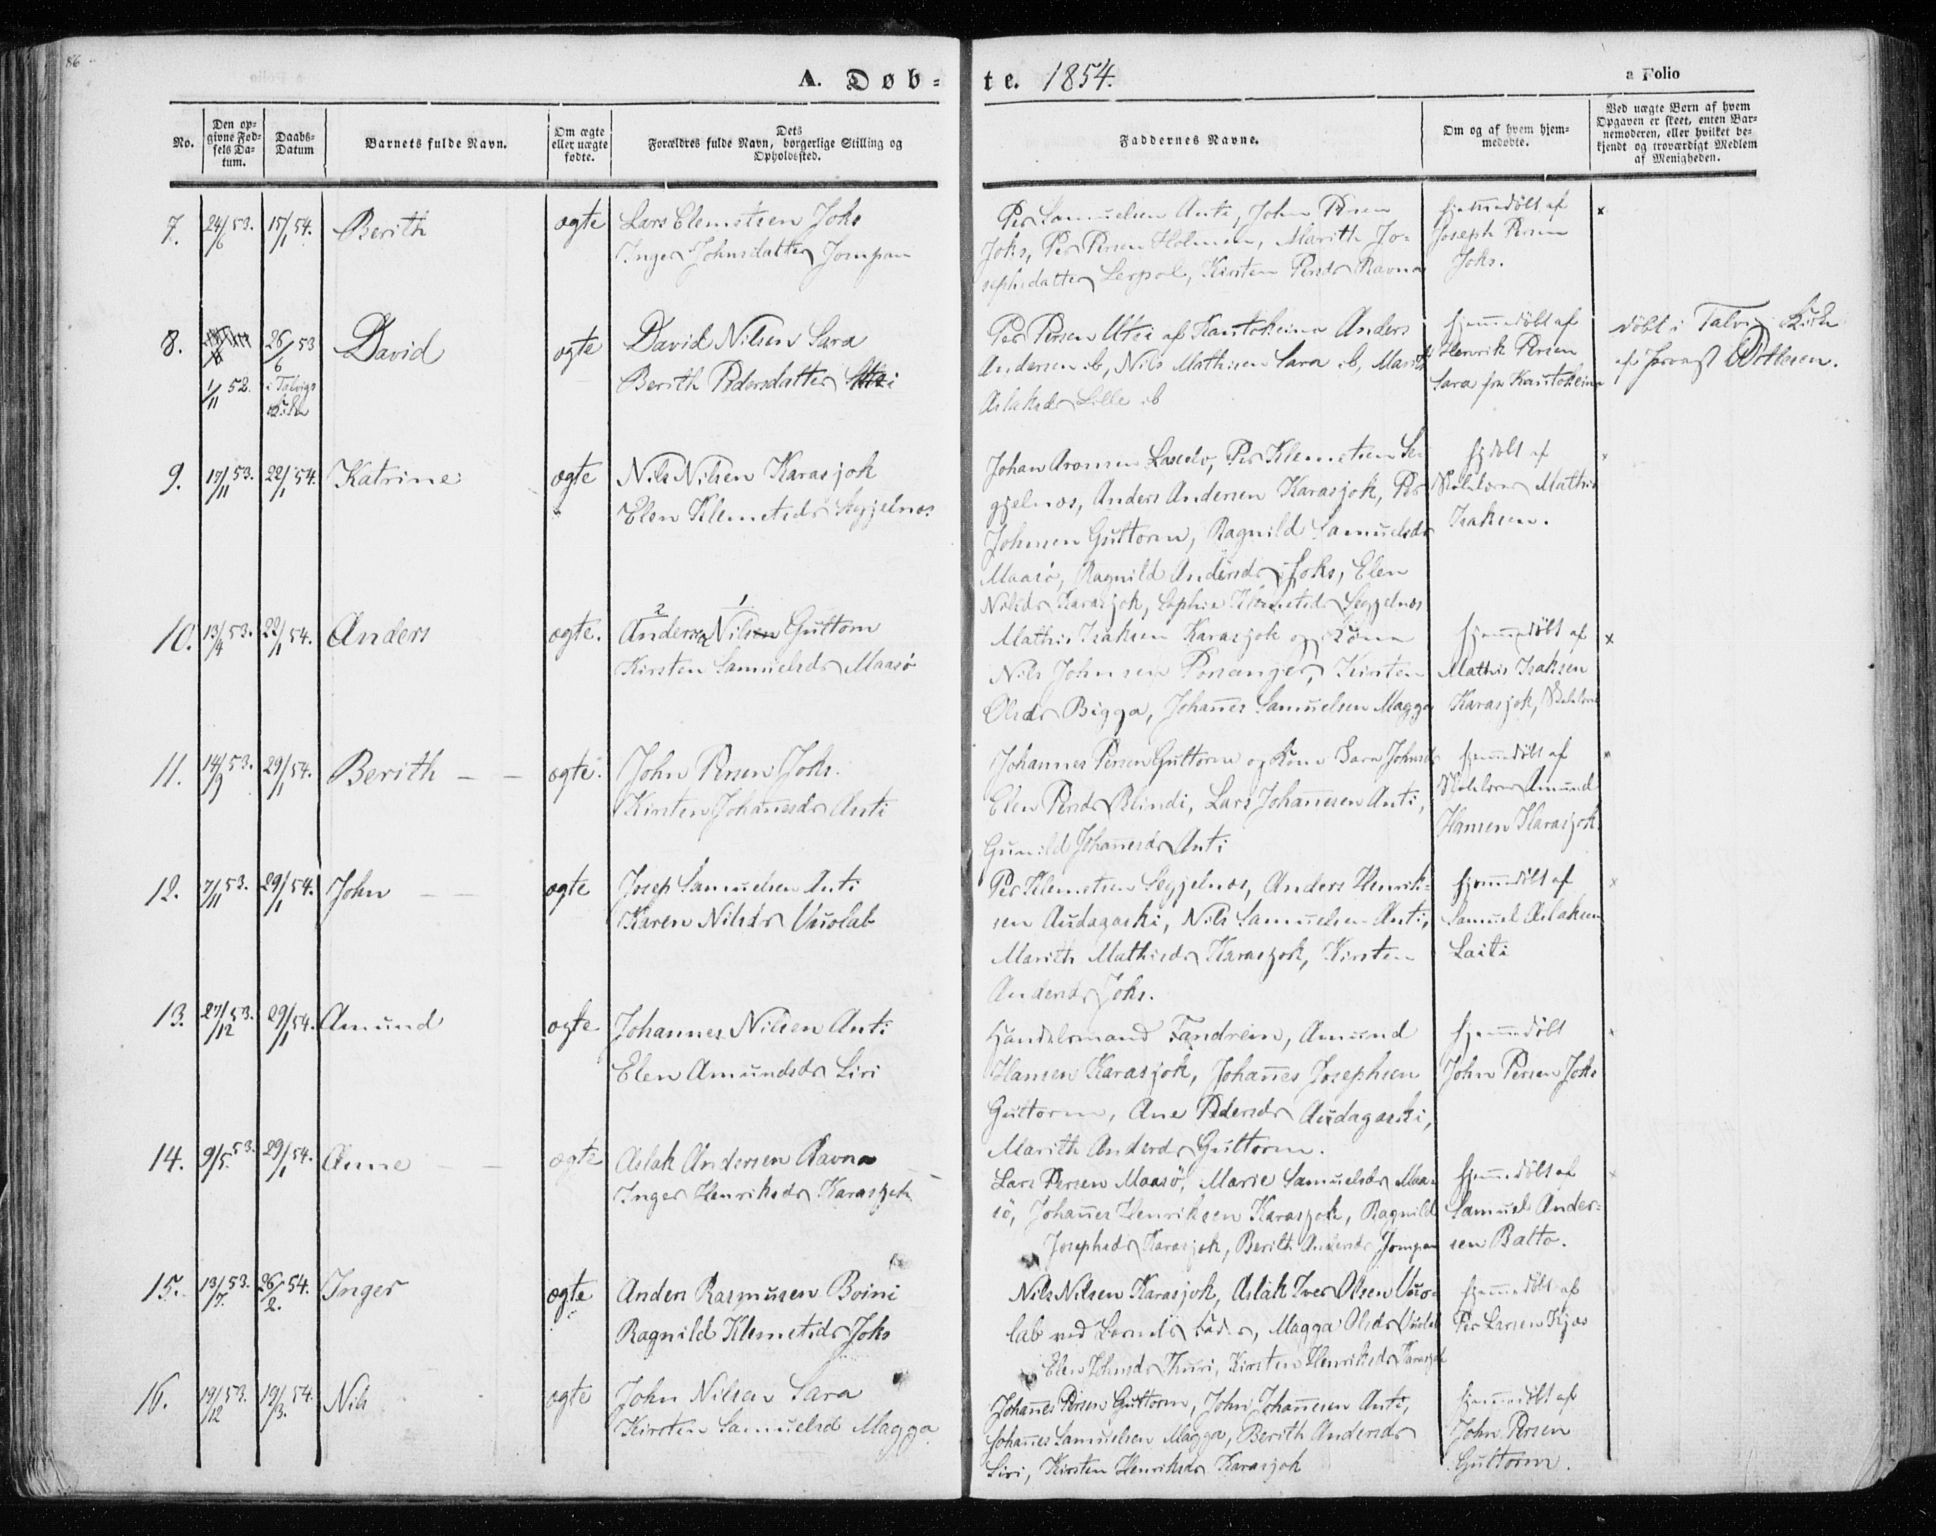 86
A. Døb-
te. 1854.
a Folio
No.
Den op-
givne Fød-
sels Da-
tum.
Daabs-
Datum
Barnets fulde Navn.
Om ægte
eller uægte
fødte.
Dets
Forældres fulde Navn, borgerlige Stilling og
Opholdssted.
Faddernes Navne.
Om og af hvem hjem-
medøbte.
Ved uægte Børn af hvem
Opgaven er skeet, enten Bar-
nemoderen, eller hvilket be-
kjendt og troværdigt Medlem
af Menigheden.
7. 24/6 53. 15/1 54. Berith ægte
Lars Clemetsen Joks
Inger Johnsdatter Jompan
Per Samuelsen Anti, John Persen
Joks, Per Persen Holmen, Marith Jo-
sephsdatter Lerpol, Kirsten Persdr Ravna
hjemmedöbt af
Joseph Persen
Joks.
x
8. 1/11 52. 26/6 53 i Talvigs Kirke David ægte
David Nilsen Sara
Berith Pedersdatter Utsi
Per Persen Utsi af Kautokeino Anders
Andersen ib, Nils Mathisen Sara ib, Marith
Aslaksdr Lille ib
hjemmedöbt af
Henrik Persen
Sara fra Kautokeino
döbt i Talvig Kirke
af Provst
9. 17/11 53. 22/1 54. Katrine ægte
Nils Nilsen Karasjok
Elen Klemetsdr Seggelnæs
Johan Aronsen Lascelo, Per Klemetsen Se-
ggelnæs, Anders Andersen Karasjok, Per
Johnsen Guttorm, Ragnild Samuelsdr
Maasö, Ragnild Andersdr Joks, Elen
Nilsdr Karasjok, Sophie Klemetsdr Seggelnæs
hjdöbt af
Skolelærer Mathis
Isaksen.
10. 13/4 53. 22/1 54. Anders ægte.
2 1
Anders Nilsen Guttorm
Kirsten Samuelsdr Maasö
Mathis Isaksen Karasjok og Kone
Nils Johnsen Porsanger, Kirsten
Olsdr Bigga, Johañes Samuelsen Magga
hjemmedöbt af
Mathis Isaksen
Karasjok, Skolelærer
x
11. 14/9 53. 29/1 54. Berith - - ægte.
John Persen Joks.
Kirsten Johañesdr Anti
Johannes Persen Guttorm og Kone Sara Johnsdr
Elen Persdr Blindi, Lars Johañesen Anti,
Gunild Johañesdr Anti
hjemmedöbt af
Skolelærer Amund
Hansen Karasjok.
12. 7/11 53. 29/1 54. John - - ægte
Josep Samuelsen Anti
Karen Nilsdr Vuolab
Per Klemetsen Seggelnæs, Anders Henrik-
sen Audagaski, Nils Samuelsen Anti,
Marith Mathisdr Karasjok, Kirsten
Andersdr Joks.
hjemmedöbt af
Samuel Aslaksen
Laiti
13. 27/12 53. 29/1 54. Amund ægte
Johannes Nilsen Anti
Elen Amundsdr Siri
Handelsmand Fandrein, Amund
Hansen Karasjok, Johañes Josephsen
Guttorm, Ane Pedersdr Audagaski,
Marith Andersdr Guttorm.
hjemmedöbt
John Persen Joks
14. 9/5 53. 29/1 54. Anne - - ægte
Aslak Andersen Ravna
Inger Henriksdr Karasjok
Lars Persen Maasö, Marie Samuelsdr Maa-
sö, Johañes Henriksen Karasjok, Ragnild
Josephsdr Karasjok, Berith Andersdr Jompan
hjemmedöbt af
Samuel Ander-
sen Balto.
15. 13/7 53. 26/2 54. Inger ægte
Anders Rasmusen Boini
Ragnild Klemetsdr Joks
Nils Nilsen Karasjok, Aslak Iver Olsen Vuo-
lab ved Barnets Fader, Magga Olsdr Vuolab
Elen Johnsdr Thuri, Kirsten Henriksdr Karasjok
hjemmedöbt af
Per Larsen Kjæs
16. 19/12 53. 19/3 54. Nils ægte
John Nilsen Sara
Kirsten Samuelsd Magga
Johañes Persen Guttorm, John Johañesen Anti,
Johañes Samuelsen Magga, Berith Andersdr
Siri, Kirsten Henriksdr Karasjok
hjemmedöbt af
John Persen
Guttorm.